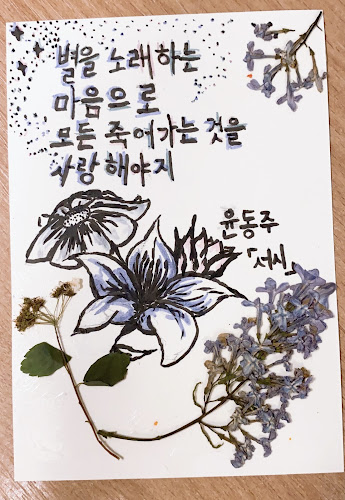 별을 노래하는
마음으로
모든 죽어가는 것을
사랑해야지
윤동주
「서시」